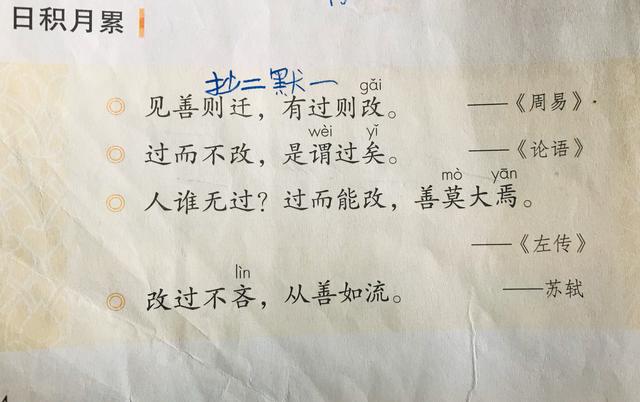 日积月累
抄二默一
gǎi
见善则迁，有过则改。 ——《周易》
wèi yǐ
过而不改，是谓过矣。 ——《论语》
mò yān
人谁无过？过而能改，善莫大焉。
——《左传》
lìn
改过不吝，从善如流。 ——苏轼